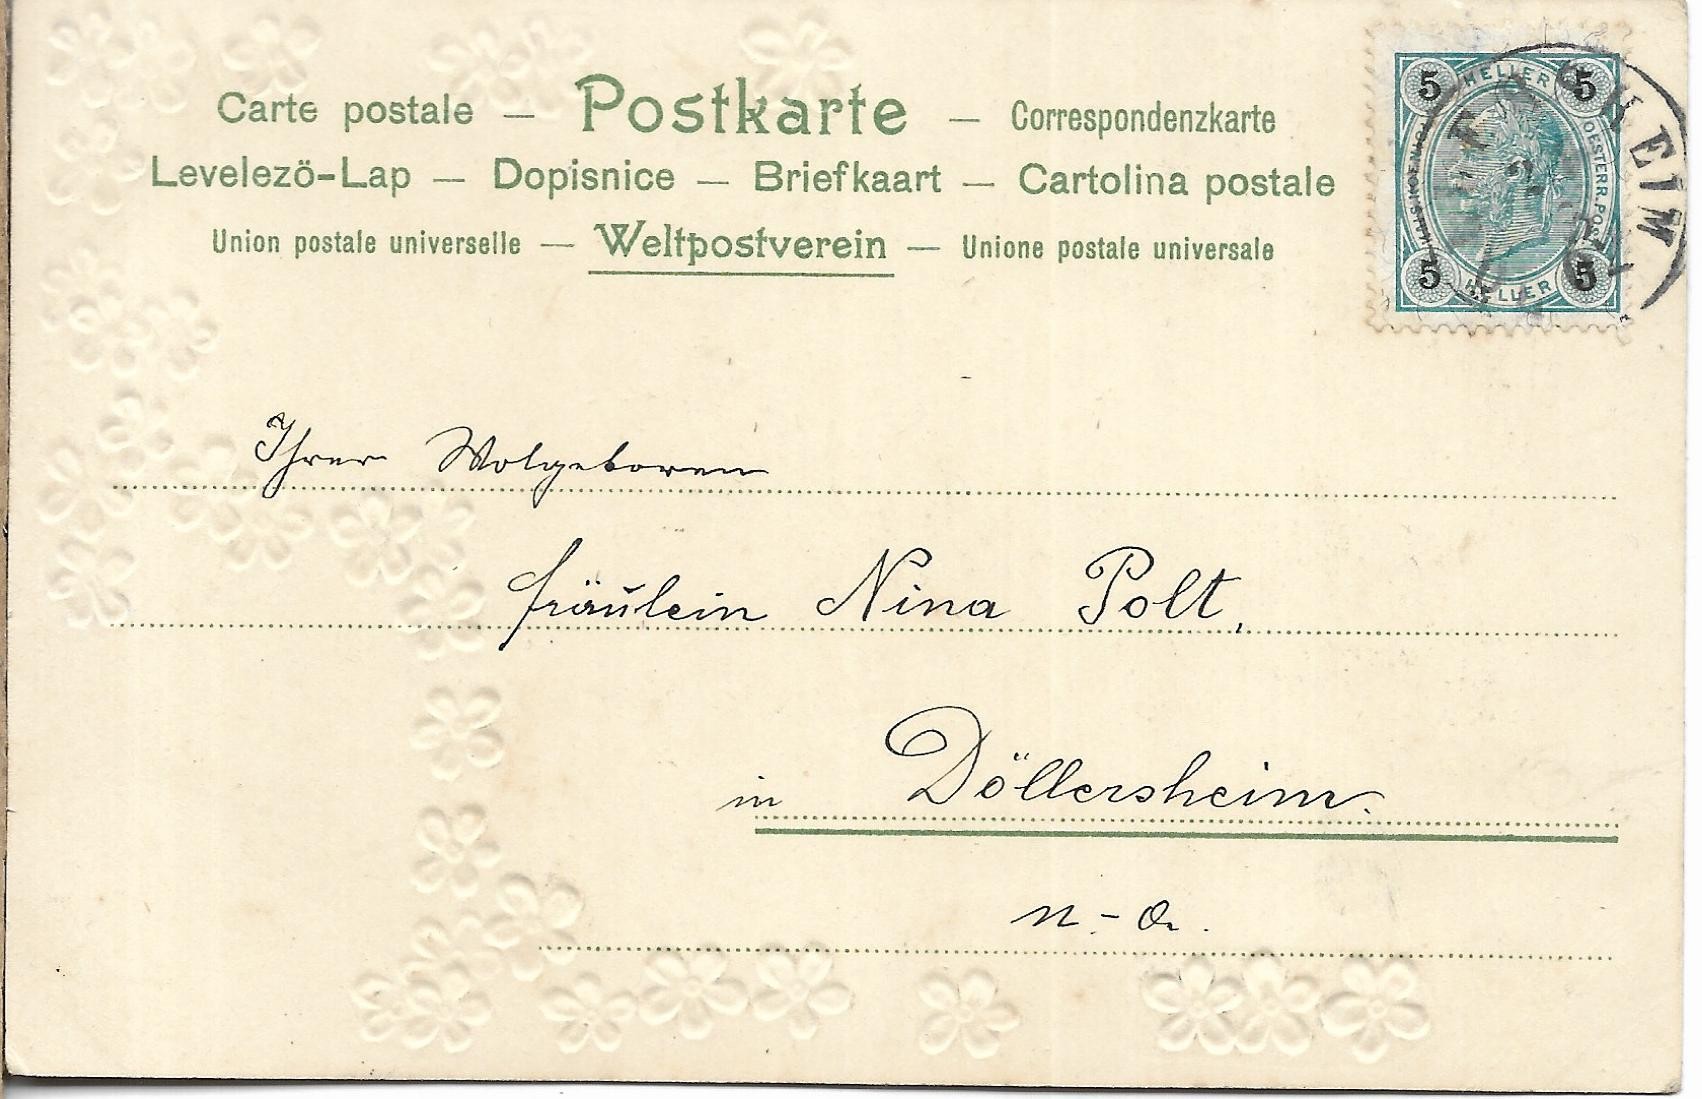 Carte postale — Postkarte — Correspondenzkarte
Levelezö-Lap — Dopisnice — Briefkaart — Cartolina postale
Union postale universelle — Weltpostverein — Unione postale universale
5 HELLER 5
OESTERR. POST
5 HELLER 5
HEIM
Ihrer Wolgeboren
Fräulein Nina Polt,
in Döllersheim.
N.-Ö.